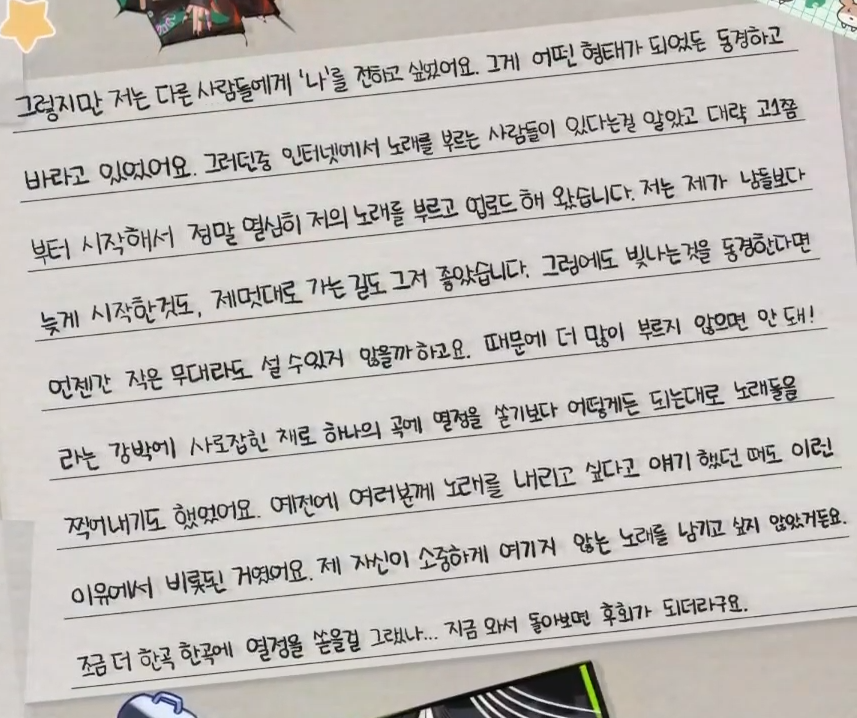 그렇지만 저는 다른 사람들에게 '나'를 전하고 싶었어요. 그게 어떤 형태가 되었든 동경하고
바라고 있었어요. 그러던중 인터넷에서 노래를 부르는 사람들이 있다는걸 알았고 대략 고1쯤
부터 시작해서 정말 열심히 저의 노래를 부르고 업로드 해 왔습니다. 저는 제가 남들보다
늦게 시작한것도, 제멋대로 가는 길도 그저 좋았습니다. 그럼에도 빛나는것을 동경한다면
언젠간 작은 무대라도 설 수있지 않을까 하고요. 때문에 더 많이 부르지 않으면 안 돼!
라는 강박에 사로잡힌 채로 하나의 곡에 열정을 쏟기보다 어떻게든 되는대로 노래들을
찍어내기도 했었어요. 예전에 여러분께 노래를 내리고 싶다고 얘기 했던 때도 이런
이유에서 비롯된 거였어요. 제 자신이 소중하게 여기지 않는 노래를 남기고 싶지 않았거든요.
조금 더 한곡 한곡에 열정을 쏟을걸 그랬나... 지금 와서 돌아보면 후회가 되더라구요.